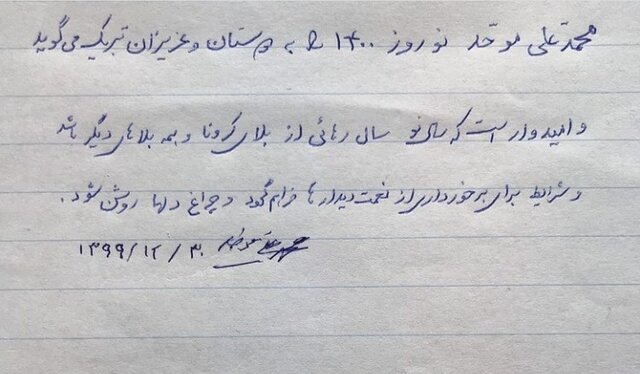 محمدعلی موحد نوروز ۱۴۰۰ را به دوستان و عزیزان تبریک می‌گوید
و امیدوار است که سال نو سال رهائی از بلای کرونا و همه بلاهای دیگر باشد
و شرایط برای برخورداری از نعمت دیدارها فراهم گردد و چراغ دلها روشن شود.
۱۳۹۹/۱۲/۳۰